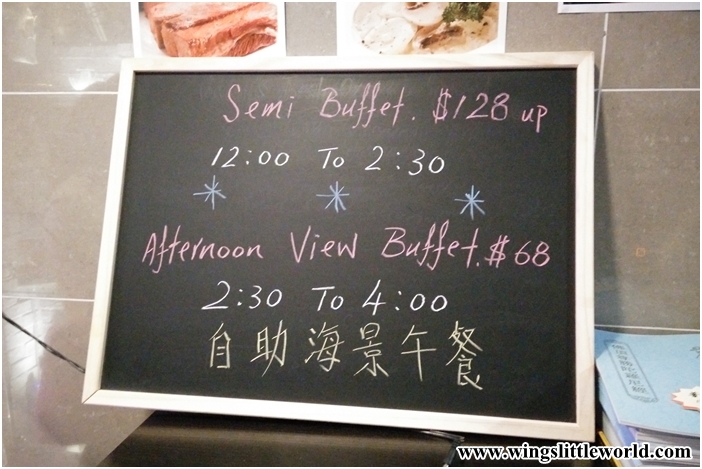 Semi Buffet. $128 up
12:00 To 2:30
Afternoon View Buffet. $68
2:30 To 4:00
自助海景午餐
www.wingslittleworld.com